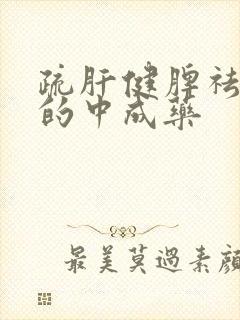 疏肝健脾祛
的中成藥
最美莫過素顔